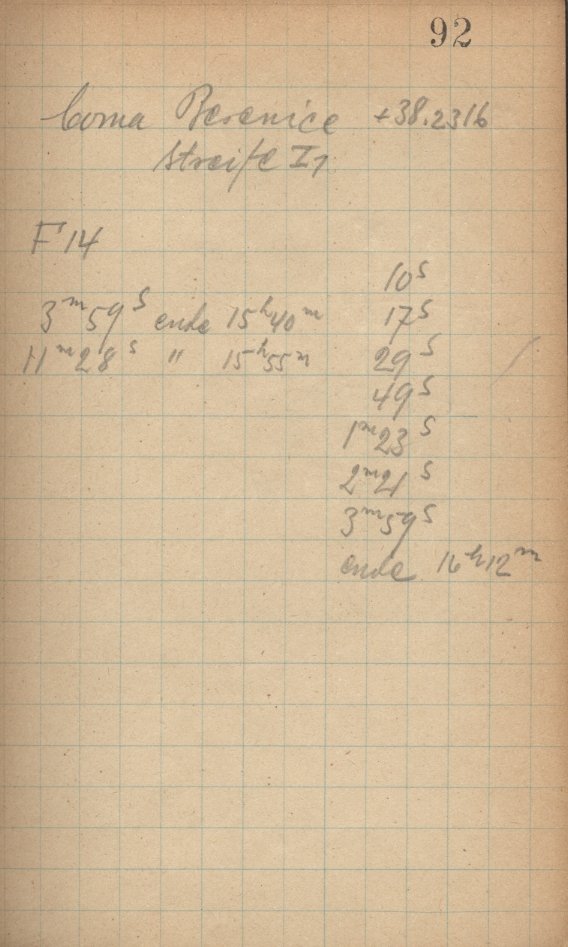 92
Coma Berenice +38.2316
Streife I1
F 14
10s
3m59s ende 15h40m 17s
11m28s " 15h55m 29s
49s
1m23s
2m21s
3m59s
ende 16h12m